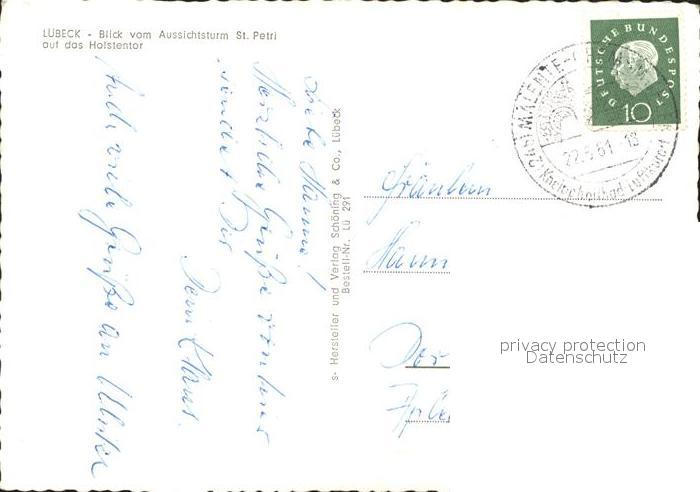 LÜBECK - Blick vom Aussichtsturm St. Petri
auf das Holstentor
Liebe Hanne!
Herzliche Grüße von hier
sendet Dir
Dein Klaus.
Auch viele Grüße an
s- Hersteller und Verlag Schöning & Co., Lübeck
Bestell-Nr. Lü 291
DEUTSCHE BUNDESPOST
10
(24b) MALENTE-
22.5.61-18
Kneippheilbad Luftkurort
Fräulein
Hann
Dor
privacy protection
Datenschutz